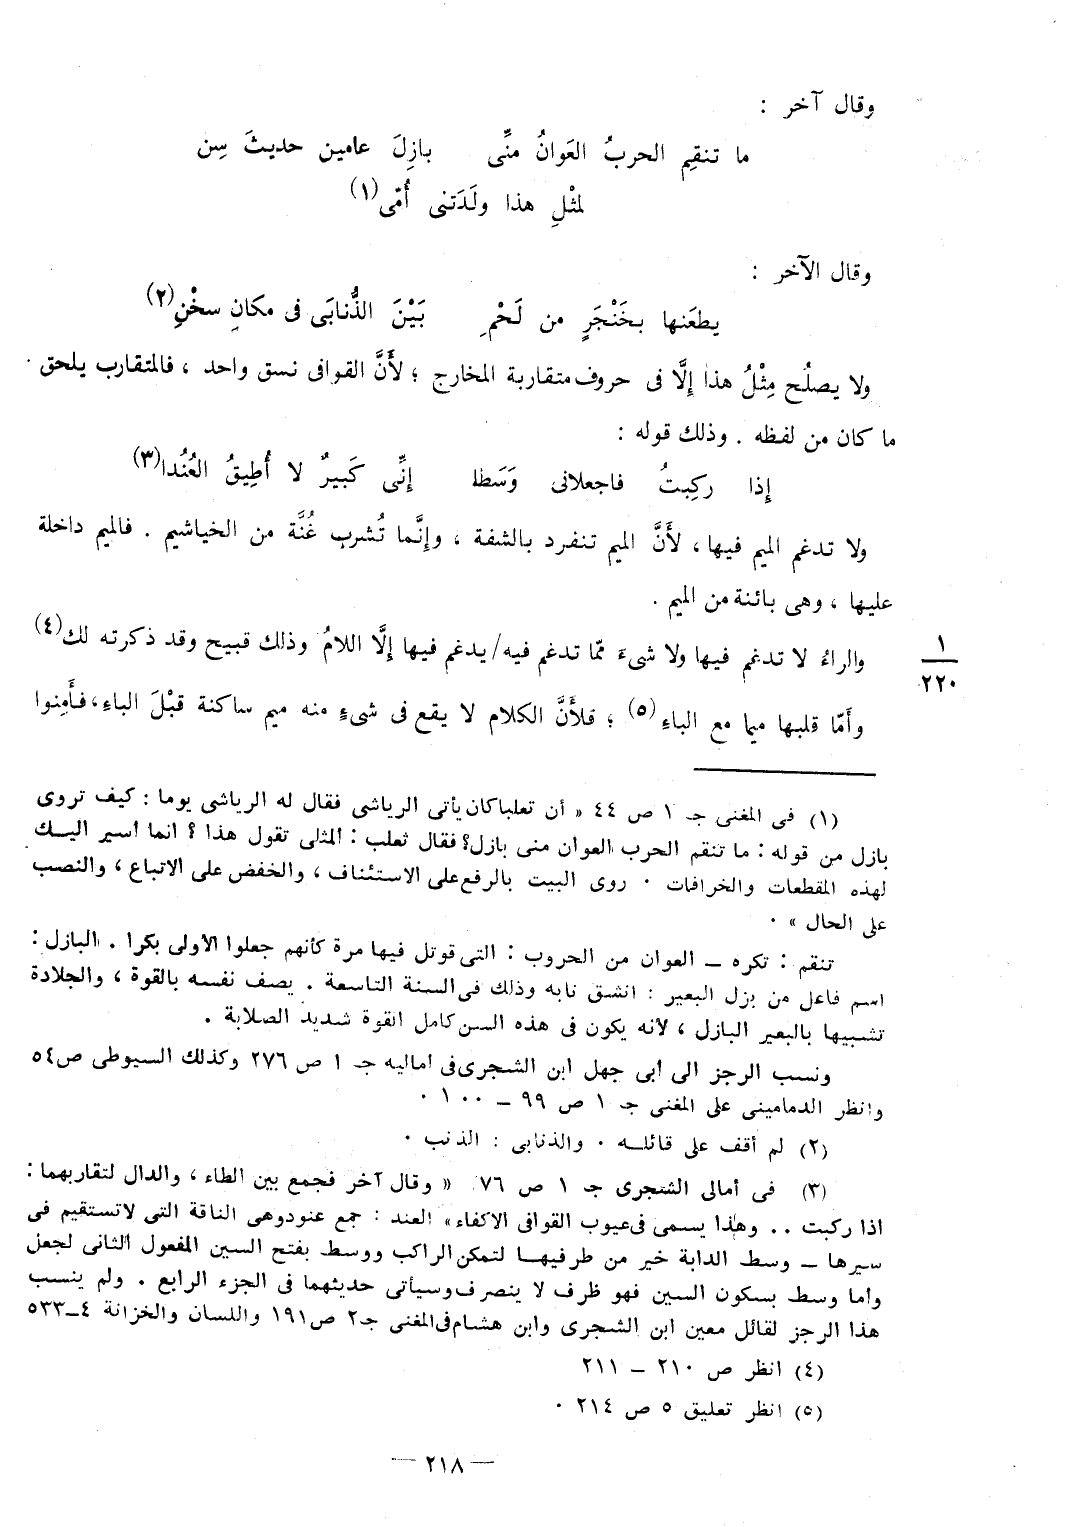 وقال آخر :
ما تنقِم الحربُ العَوانُ منِّى بازِلَ عامين حديثَ سِن
لمثْلِ هذا ولَدَتنى أُمّى(١)
وقال الآخر :
يطعَنها بخَنْجَرٍ من لَحْمِ بَيْنَ الذُّنابَى فى مكانِ سخْنِ(٢)
ولا يصلُح مِثْلُ هذا إلَّا فى حروف متقاربة المخارج ؛ لأَنَّ القوافى نسق واحد ، فالمتقارب يلحق
ما كان من لفظه . وذلك قوله :
إذا ركِبتُ فاجعلانى وَسَطا إنِّى كَبيرٌ لا أُطِيقُ العُنُدا(٣)
ولا تدغم الميم فيها ، لأَنَّ الميم تنفرد بالشفة ، وإنَّما تُشرب غُنَّة من الخياشيم . فالميم داخلة
عليها ، وهى بائنة من الميم .
والراءُ لا تدغم فيها ولا شىءَ ممّا تدغم فيه/يدغم فيها إلَّا اللامُ وذلك قبيح وقد ذكرته لك(٤)
١
٢٢٠
وأَمّا قلبها ميما مع الباءِ(٥) ؛ فلأَنَّ الكلام لا يقع فى شىءٍ منه ميم ساكنة قبْلَ الباءِ ، فأَمِنوا
(١) فى المغنى جـ ١ ص ٤٤ « أن ثعلبا كان يأتى الرياشى فقال له الرياشى يوما : كيف تروى
بازل من قوله : ما تنقم الحرب العوان منى بازل؟ فقال ثعلب : ألمثلى تقول هذا ؟ انما أسير اليـك
لهذه المقطعات والخرافات . روى البيت بالرفع على الاستئناف ، والخفض على الاتباع ، والنصب
على الحال » .
تنقم : تكره ــ العوان من الحروب : التى قوتل فيها مرة كأنهم جعلوا الأولى بكرا . البازل :
اسم فاعل من بزل البعير : انشق نابه وذلك فى السنة التاسعة . يصف نفسه بالقوة ، والجلادة
تشبيها بالبعير البازل ، لأنه يكون فى هذه السن كامل القوة شديد الصلابة .
ونسب الرجز الى أبى جهل ابن الشجرى فى أماليه جـ ١ ص ٢٧٦ وكذلك السيوطى ص٥٤
وانظر الدمامينى على المغنى جـ ١ ص ٩٩ ــ ١٠٠ .
(٢) لم أقف على قائلـه . والذنابى : الذنب .
(٣) فى أمالى الشجرى جـ ١ ص ٧٦ « وقال آخر فجمع بين الطاء ، والدال لتقاربهما :
اذا ركبت .. وهذا يسمى فى عيوب القوافى الاكفاء» العند : جمع عنود وهى الناقة التى لا تستقيم فى
سيرها ــ وسط الدابة خير من طرفيهـا لتمكن الراكب ووسط بفتح السين المفعول الثانى لجعل
وأما وسط بسكون السين فهو ظرف لا ينصرف وسيأتى حديثهما فى الجزء الرابع . ولم ينسب
هذا الرجز لقائل معين ابن الشجرى وابن هشام فى المغنى جـ٢ ص١٩١ واللسان والخزانة ٤ــ٥٣٣
(٤) انظر ص ٢١٠ ــ ٢١١
(٥) انظر تعليق ٥ ص ٢١٤ .
ــ ٢١٨ ــ